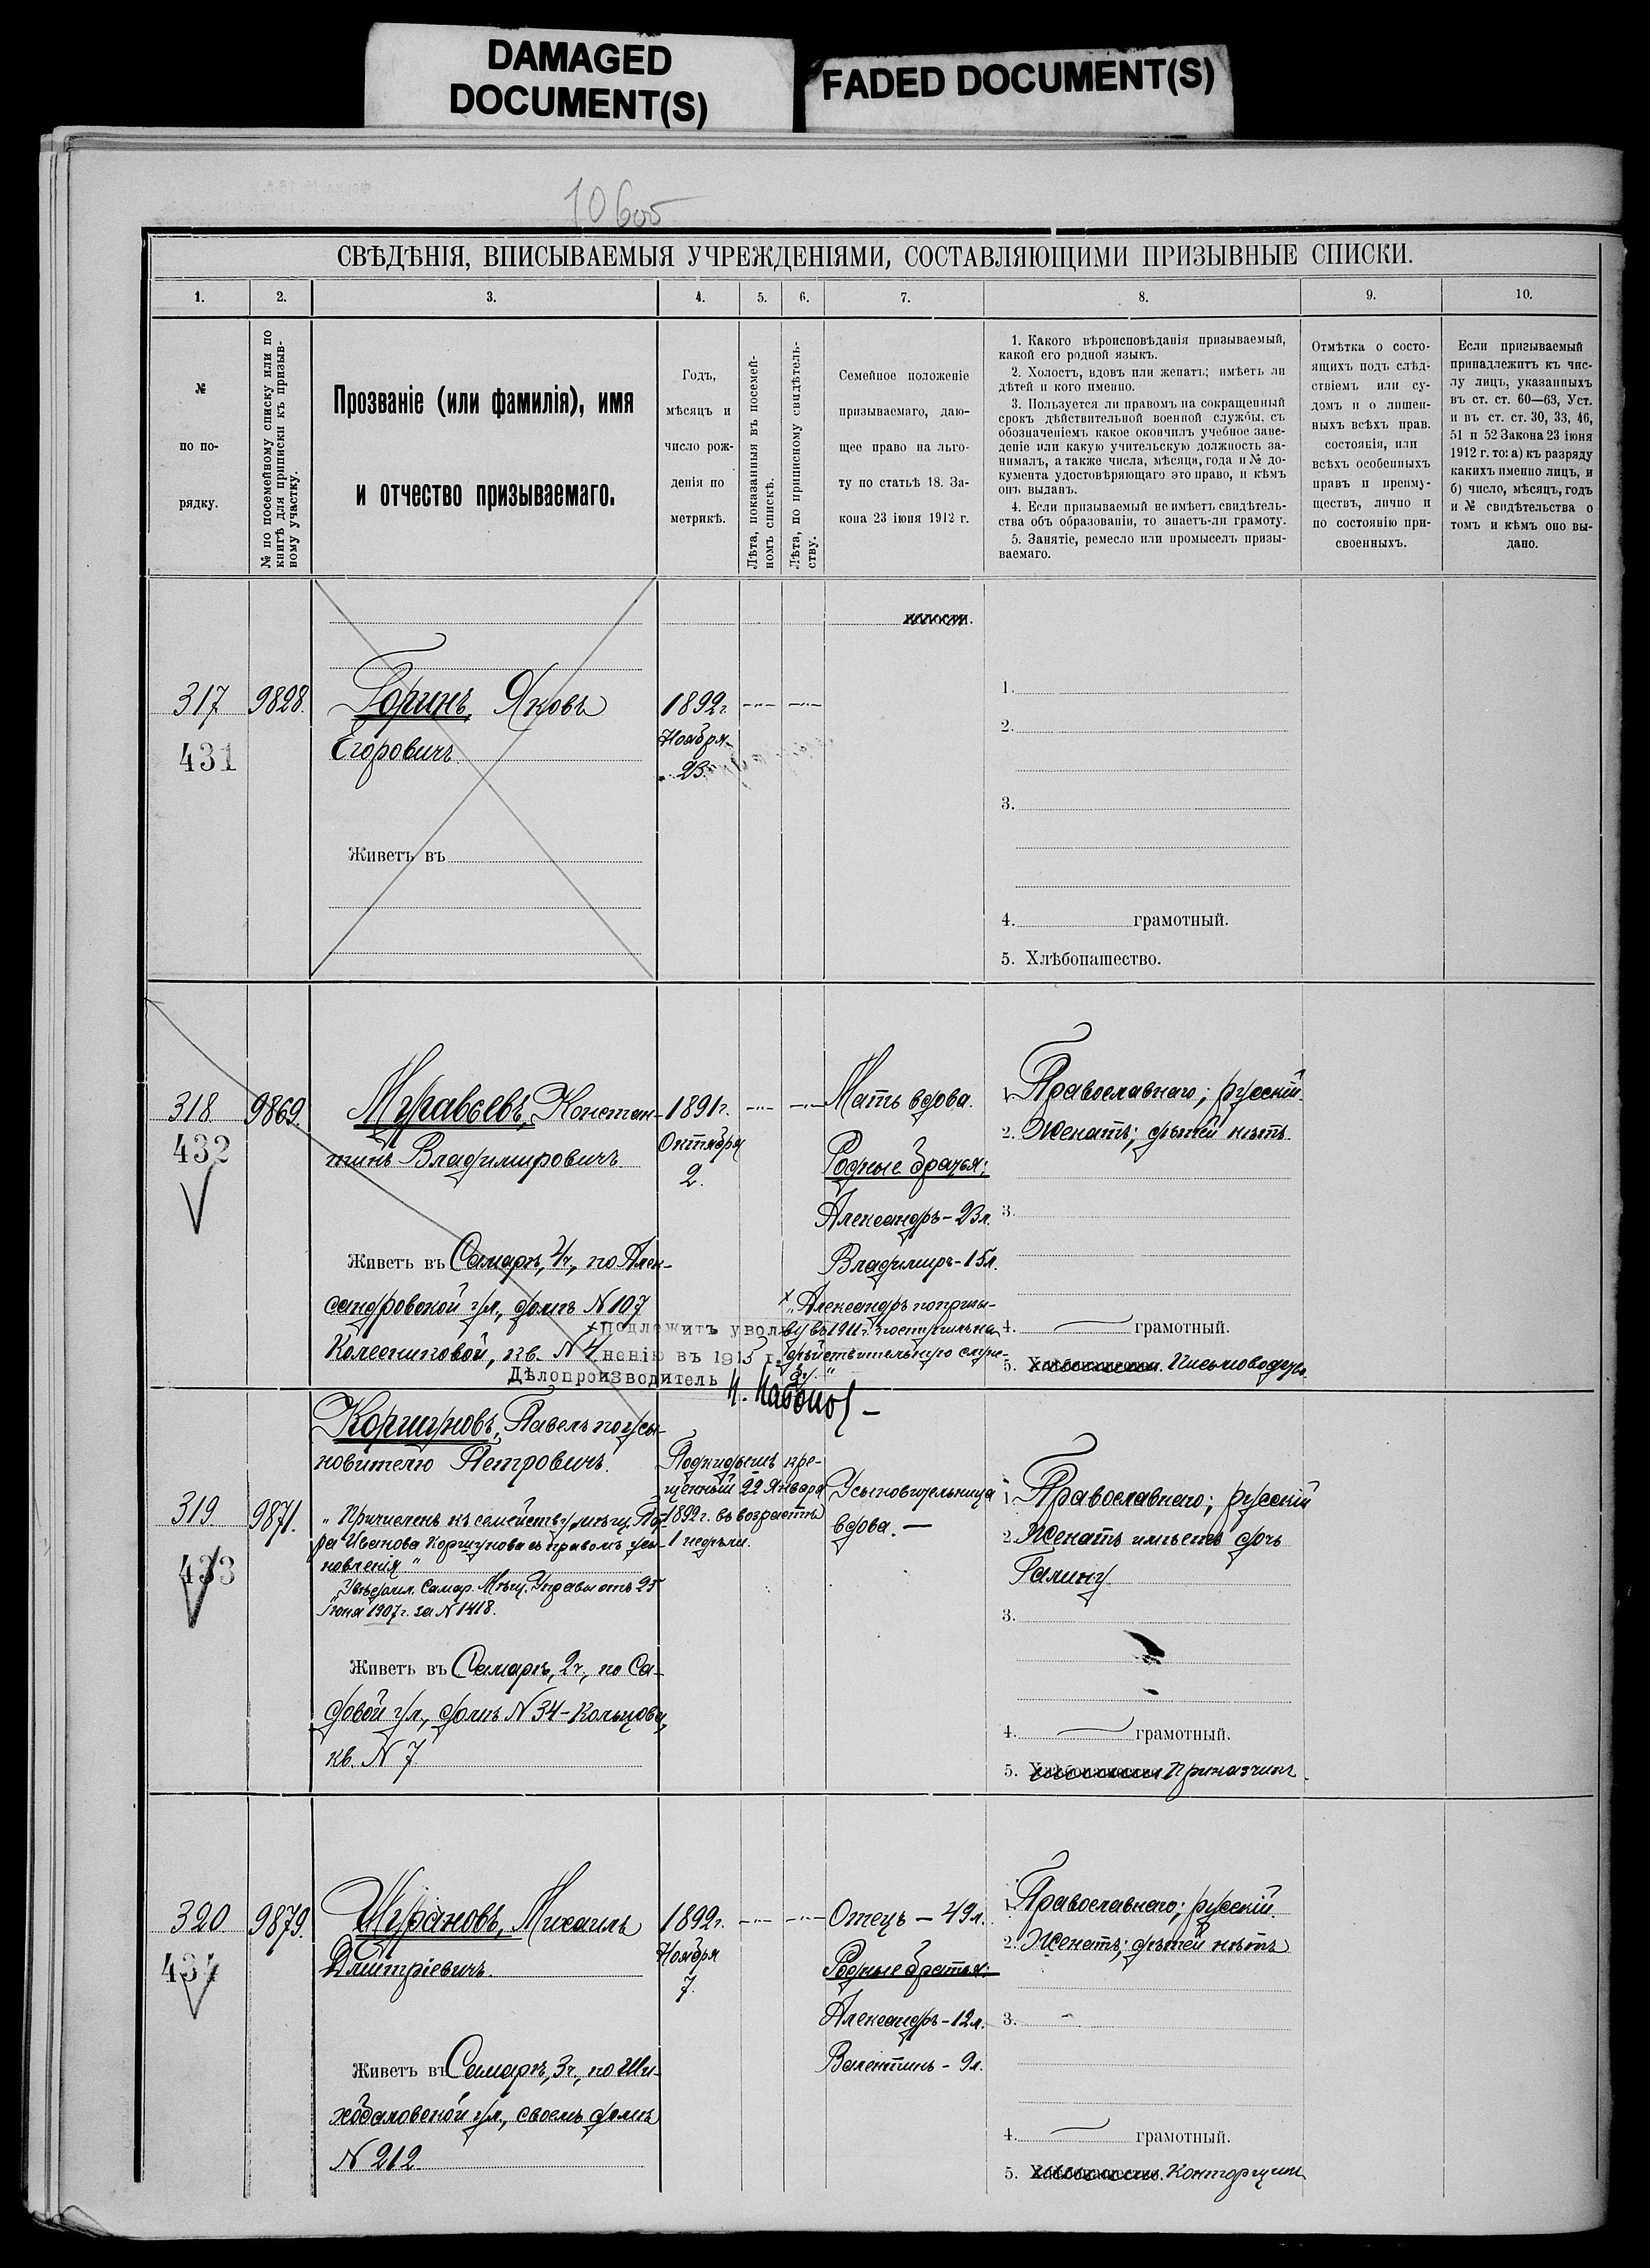 DAMAGED
DOCUMENT(S)
FADED DOCUMENT(S)
10605
СВѢДѢНІЯ, ВПИСЫВАЕМЫЯ УЧРЕЖДЕНІЯМИ, СОСТАВЛЯЮЩИМИ ПРИЗЫВНЫЕ СПИСКИ.
1. 2. 3. 4. 5. 6. 7. 8. 9. 10.
№
по по-
рядку.
№ по посемейному списку или по
книгѣ для приписки къ призыв-
ному участку.
Прозваніе (или фамилія), имя
и отчество призываемаго.
Годъ,
мѣсяцъ и
число рож-
денія по
метрикѣ.
Лѣта, показанныя въ посемей-
номъ спискѣ.
Лѣта, по приписному свидѣтель-
ству.
Семейное положеніе
призываемаго, даю-
щее право на льго-
ту по статьѣ 18. За-
кона 23 іюня 1912 г.
1. Какого вѣроисповѣданія призываемый,
какой его родной языкъ.
2. Холостъ, вдовъ или женатъ; имѣетъ ли
дѣтей и кого именно.
3. Пользуется ли правомъ на сокращенный
срокъ дѣйствительной военной службы, съ
обозначеніемъ какое окончилъ учебное заве-
деніе или какую учительскую должность за-
нималъ, а также числа, мѣсяца, года и № до-
кумента удостовѣряющаго это право, и кѣмъ
онъ выданъ.
4. Если призываемый не имѣетъ свидѣтель-
ства объ образованіи, то знаетъ-ли грамоту.
5. Занятіе, ремесло или промыселъ призы-
ваемаго.
Отмѣтка о состо-
ящихъ подъ слѣд-
ствіемъ или су-
домъ и о лишен-
ныхъ всѣхъ прав.
состоянія, или
всѣхъ особенныхъ
правъ и преиму-
ществъ, лично и
по состоянію при-
своенныхъ.
Если призываемый
принадлежитъ къ чис-
лу лицъ, указанныхъ
въ ст. ст. 60—63, Уст.
и въ ст. ст. 30, 33, 46,
51 и 52 Закона 23 іюня
1912 г. то: а) къ разряду
какихъ именно лицъ, и
б) число, мѣсяцъ, годъ
и № свидѣтельства о
томъ и кѣмъ оно вы-
дано.
317 9828. Горинъ, Яковъ 1892г.
431 Егоровичъ Ноября
23
Живетъ въ
1.
2.
3.
4. грамотный.
5. Хлѣбопашество.
318 9869. Муравьевъ, Констан-
432 тинъ Владимировичъ
Живетъ въ Самарѣ, 4ч, по Алек-
сандровской ул., домъ N 107
Колесниковой, кв. N 4
Подлежитъ уволь-
ненію въ 1915 г.
Дѣлопроизводитель
1891г.
Октября
2.
Мать вдова.
Родные братья:
Александръ - 23л.
Владимиръ - 15л.
"Александръ по призы-
ву въ 1911г. поступилъ на
дѣйствительную служ-
бу."
1. Православнаго; русскій.
2. Женатъ; дѣтей нѣтъ.
3.
4. грамотный.
5. Письмоводит.
319 9871. Коршуновъ, Павелъ по усы-
новителю Петровичъ.
433
"Причисленъ къ семейству мѣщ. Пет-
ра Иванова Коршунова съ правомъ усы-
новленія"
Увѣдомл. Самар. Мѣщ. Управы отъ 25
Іюня 1907г. за N 1418.
Живетъ въ Самарѣ, 2ч, по Са-
довой ул., домъ N 34 - Кольцова,
кв. N 7
Подкидышъ кре-
щенный 22 Января
1892г. въ возрастѣ
1 недѣли.
Усыновительница
вдова.
1. Православнаго; русскій
2. Женатъ имѣетъ дочь
Галину
3.
4. грамотный.
5. Приказчикъ.
320 9879. Шурановъ, Михаилъ
434 Дмитріевичъ.
Живетъ въ Самарѣ, 3ч, по Ши-
хобаловской ул., своемъ домѣ
N 212
1892г.
Ноября
7.
Отецъ - 49л.
Родные братья:
Александръ - 12л.
Валентинъ - 9л.
1. Православнаго; русскій.
2. Женатъ; дѣтей нѣтъ
3.
4. грамотный.
5. Конторщикъ